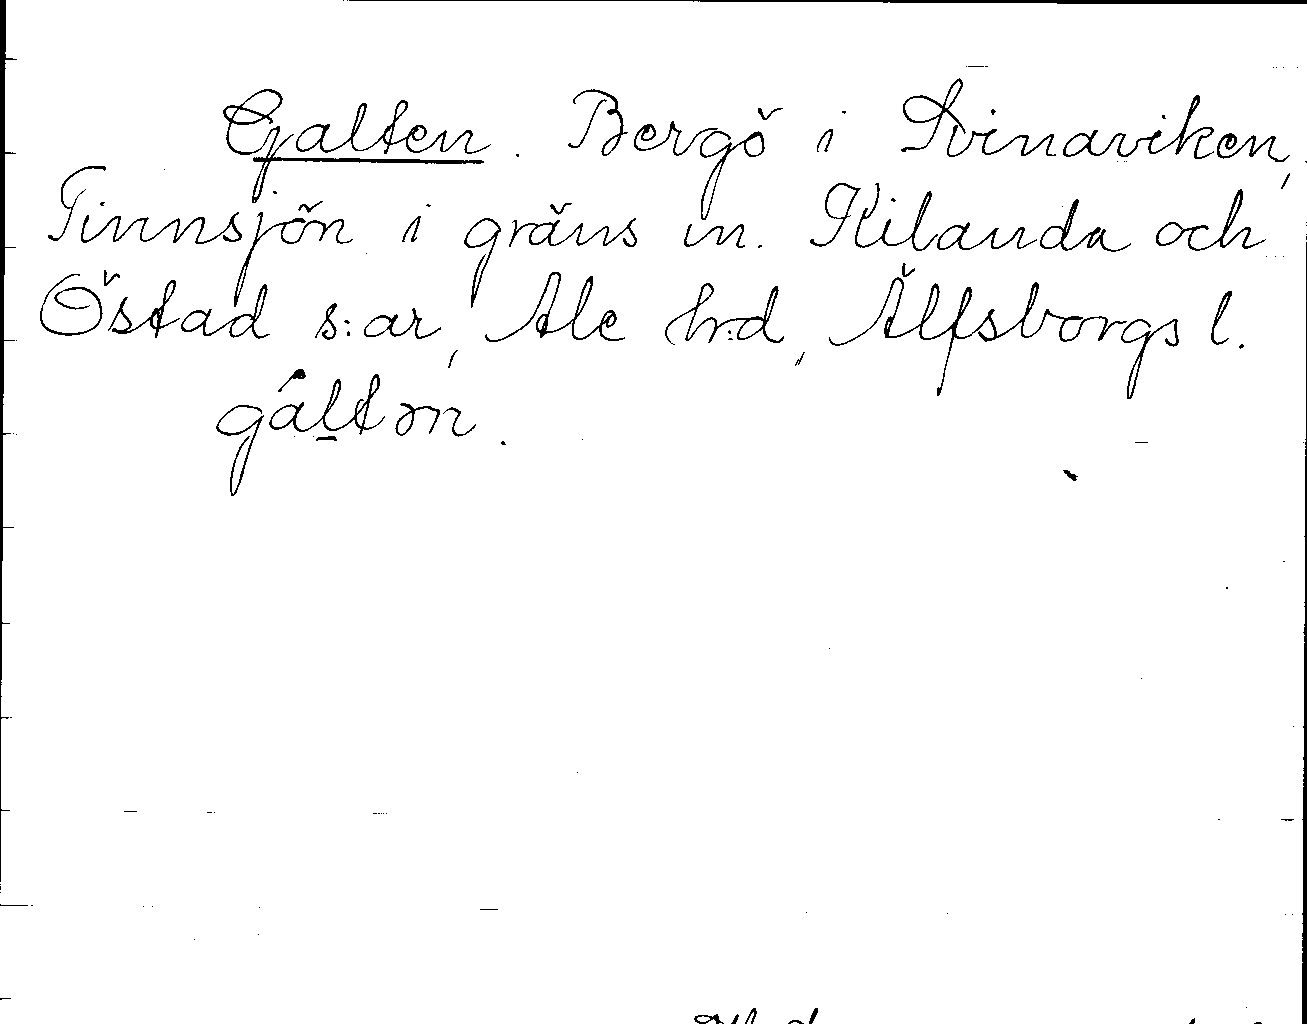 Galten. Bergö i Svinaviken,
Tinnsjön i gräns m. Kilanda och
Östad s:ar, Ale h:d, Älfsborgs l.
gàl̠tən.